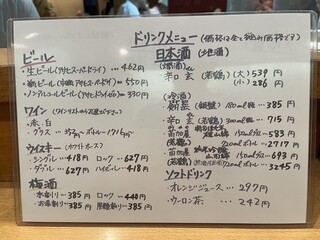 ドリンクメニュー (価格は全て税込価格です)
ビール
・生ビール(アサヒスーパードライ)… 462円
・瓶ビール(中瓶アサヒスーパードライ)… 550円
・ノンアルコールビール(アサヒドライゼロ)… 330円
ワイン (ワインリストからお選び下さい)
・赤・白
・グラス … 357円〜 ボトル … 1716円〜
ウイスキー (ホワイトホース)
・シングル … 418円 ロック … 627円
・ダブル … 627円 ハイボール … 418円
梅酒
・水割り … 385円 ロック … 440円
・お湯割り … 385円 炭酸割り … 385円
日本酒 (地酒)
(燗酒)
・辛口 玄 (若鶴) (大) 539円
(小) 286円
(冷酒)
(銀盤) 180ml瓶 … 385円
・辛口 玄 (若鶴) 300ml瓶 … 715円
150mlグラス … 583円
720mlボトル … 2717円
150mlグラス … 693円
720mlボトル … 3245円
ソフトドリンク
・オレンジジュース … 297円
・ウーロン茶 … 242円